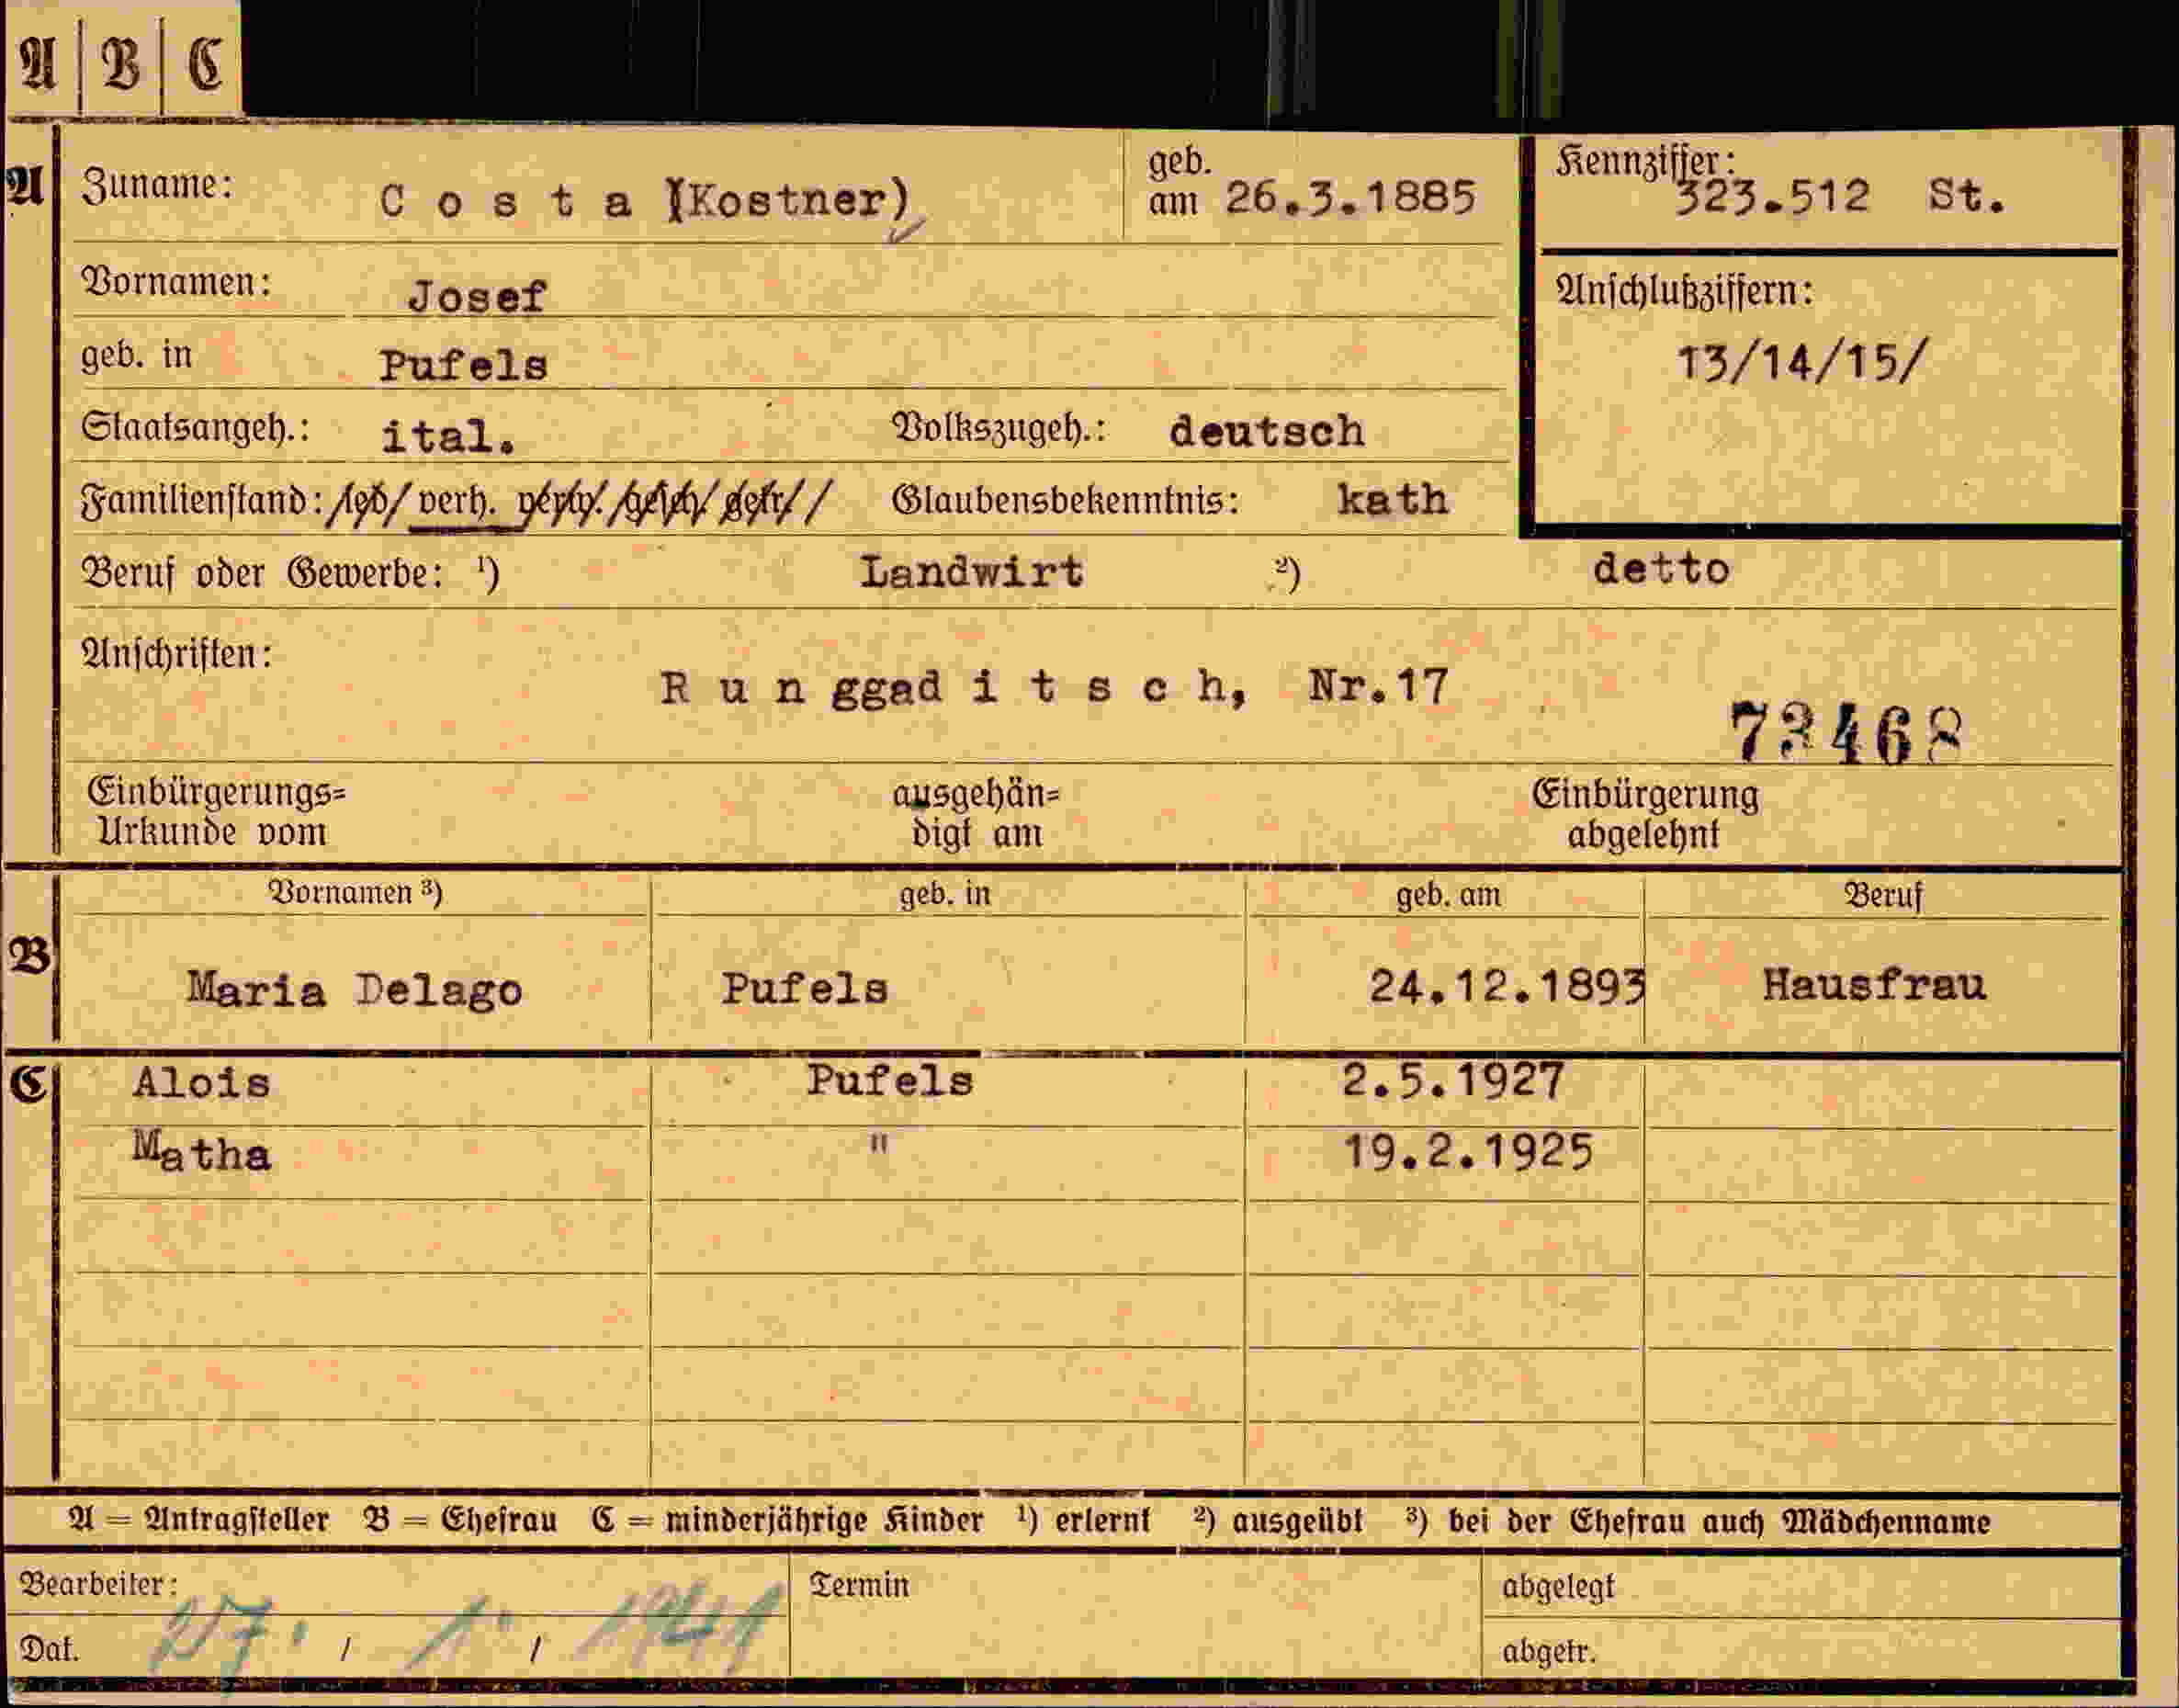 A | B | C
A Zuname: C o s t a (Kostner) geb. am 26.3.1885 Kennziffer: 323.512 St.
Vornamen: Josef Anschlußziffern:
geb. in Pufels 13/14/15/
Staatsangeh.: ital. Volkszugeh.: deutsch
Familienstand: led/ verh. verw. /gesch/ getr// Glaubensbekenntnis: kath
Beruf oder Gewerbe: ¹) Landwirt ²) detto
Anschriften:
R u n ggad i t s c h, Nr.17
73468
Einbürgerungs= ausgehän= Einbürgerung
Urkunde vom digt am abgelehnt
Vornamen ³) geb. in geb. am Beruf
B Maria Delago Pufels 24.12.1893 Hausfrau
C Alois Pufels 2.5.1927
Matha " 19.2.1925
A = Antragsteller B = Ehefrau C = minderjährige Kinder ¹) erlernt ²) ausgeübt ³) bei der Ehefrau auch Mädchenname
Bearbeiter: Termin abgelegt
Dat. 27. / 1. / 1941 abgetr.